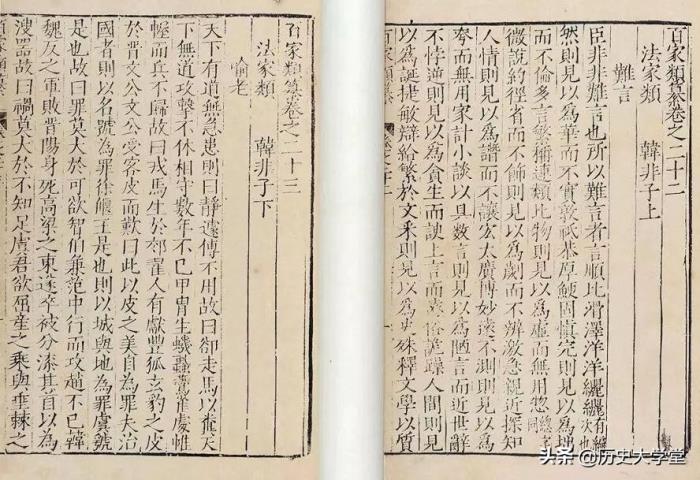 百家類纂卷之二十二
法家類 韓非子上
難言
臣非非難言也所以難言者言順比滑澤洋洋纚纚有編次也
然則見以爲華而不實敦祗恭厚鯁固慎完則見以爲拙
而不倫多言繁稱連類比物則見以爲虛而無用惣總字同
微說約徑省而不飾則見以爲劌而不辨激急親近探知
人情則見以爲譖而不讓宏大廣博妙遠不測則見以爲
夸而無用家計小談以具數言則見以爲陋言而近世辭
不悖逆則見以爲貪生而諛上言而遠俗詭躁人間則見
以爲誕捷敏辯給繁於文采則見以爲史殊釋文學以質
百家類纂卷之二十三
法家類 韓非子下
喻老
天下有道無急患則曰靜遽傳不用故曰卻走馬以糞天
下無道攻擊不休相守數年不已甲冑生蟣蝨鷰雀處帷
幄而兵不歸故曰戎馬生於郊翟人有獻豐狐玄豹之皮
於晉文公文公受客皮而歎曰此以皮之美自為罪夫治
國者則以名號為罪徐偃王是也則以城與地為罪虞虢
是也故曰罪莫大於可欲智伯兼范中行而攻趙不已韓
魏反之軍敗晉陽身死高梁之東遂卒被分漆其首以為
溲器故曰禍莫大於不知足虞君欲屈產之乘與垂棘之
头条 @历史大学堂